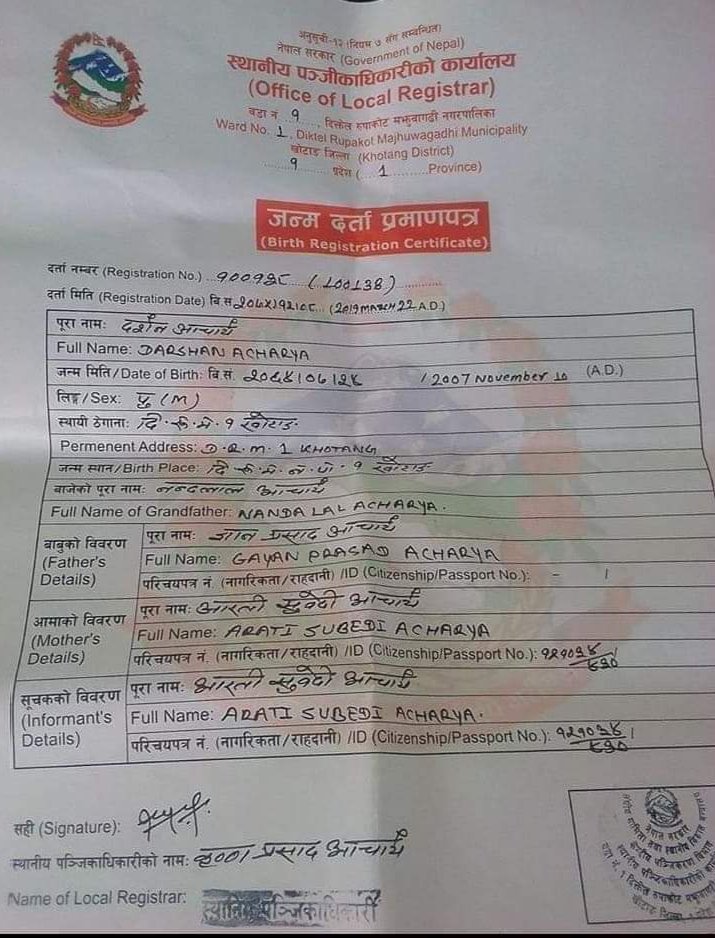 अनुसूची-१२ (नियम ७ सँग सम्बन्धित)
नेपाल सरकार (Government of Nepal)
स्थानीय पञ्जीकाधिकारीको कार्यालय
(Office of Local Registrar)
वडा नं १, दिक्तेल रुपाकोट मझुवागढी नगरपालिका
Ward No. 1, Diktel Rupakot Majhuwagadhi Municipality
खोटाङ जिल्ला (Khotang District)
१ प्रदेश (1 Province)
जन्म दर्ता प्रमाणपत्र
(Birth Registration Certificate)
दर्ता नम्बर (Registration No.) १००१३८ (100138)
दर्ता मिति (Registration Date) बि.सं. २०७५।१२।०८ (2019 MARCH 22 A.D.)
पूरा नाम: दर्शन आचार्य
Full Name: DARSHAN ACHARYA
जन्म मिति/Date of Birth: बि.सं. २०६४।०७।२४ / 2007 November 10 (A.D.)
लिङ्ग/Sex: पु (M)
स्थायी ठेगाना: दि.रु.म. १ खोटाङ
Permenent Address: D.R.M. 1 KHOTANG
जन्म स्थान/Birth Place: दि.रु.म.न.पा. १ खोटाङ
बाजेको पूरा नाम: नन्दलाल आचार्य
Full Name of Grandfather: NANDA LAL ACHARYA.
बाबुको विवरण
(Father's
Details)
पूरा नाम: ज्ञान प्रसाद आचार्य
Full Name: GAYAN PRASAD ACHARYA
परिचयपत्र नं. (नागरिकता/राहदानी) /ID (Citizenship/Passport No.): - /
आमाको विवरण
(Mother's
Details)
पूरा नाम: आरती सुवेदी आचार्य
Full Name: ARATI SUBEDI ACHARYA
परिचयपत्र नं. (नागरिकता/राहदानी) /ID (Citizenship/Passport No.):
सूचकको विवरण
(Informant's
Details)
पूरा नाम: आरती सुवेदी आचार्य
Full Name: ARATI SUBEDI ACHARYA.
परिचयपत्र नं. (नागरिकता/राहदानी) /ID (Citizenship/Passport No.):
सही (Signature):
स्थानीय पञ्जिकाधिकारीको नाम: कृष्ण प्रसाद आचार्य
Name of Local Registrar: स्थानिय पञ्जिकाधिकारी
नेपाल सरकार